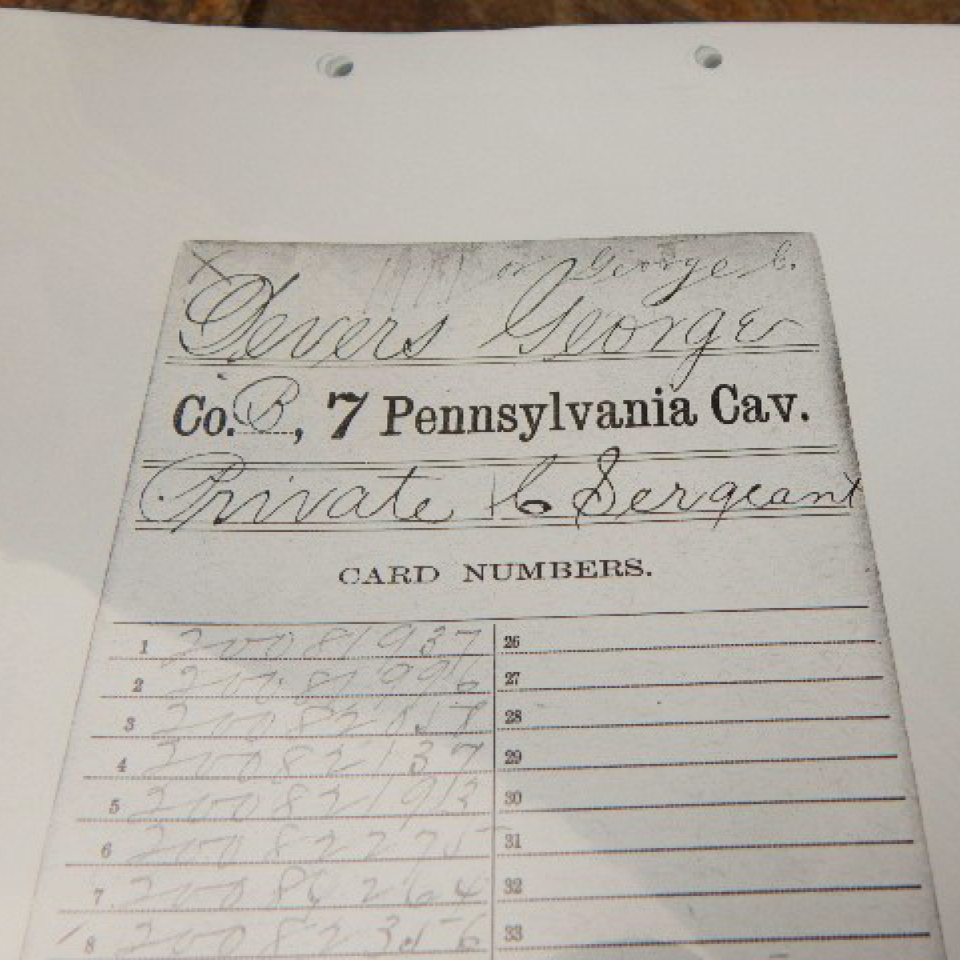 or George C.
Devers George
Co. B, 7 Pennsylvania Cav.
Private | C Sergeant
CARD NUMBERS.
1 20081937 26
2 20081996 27
3 20082057 28
4 20082137 29
5 20082193 30
6 20082275 31
7 20084264 32
8 20082356 33